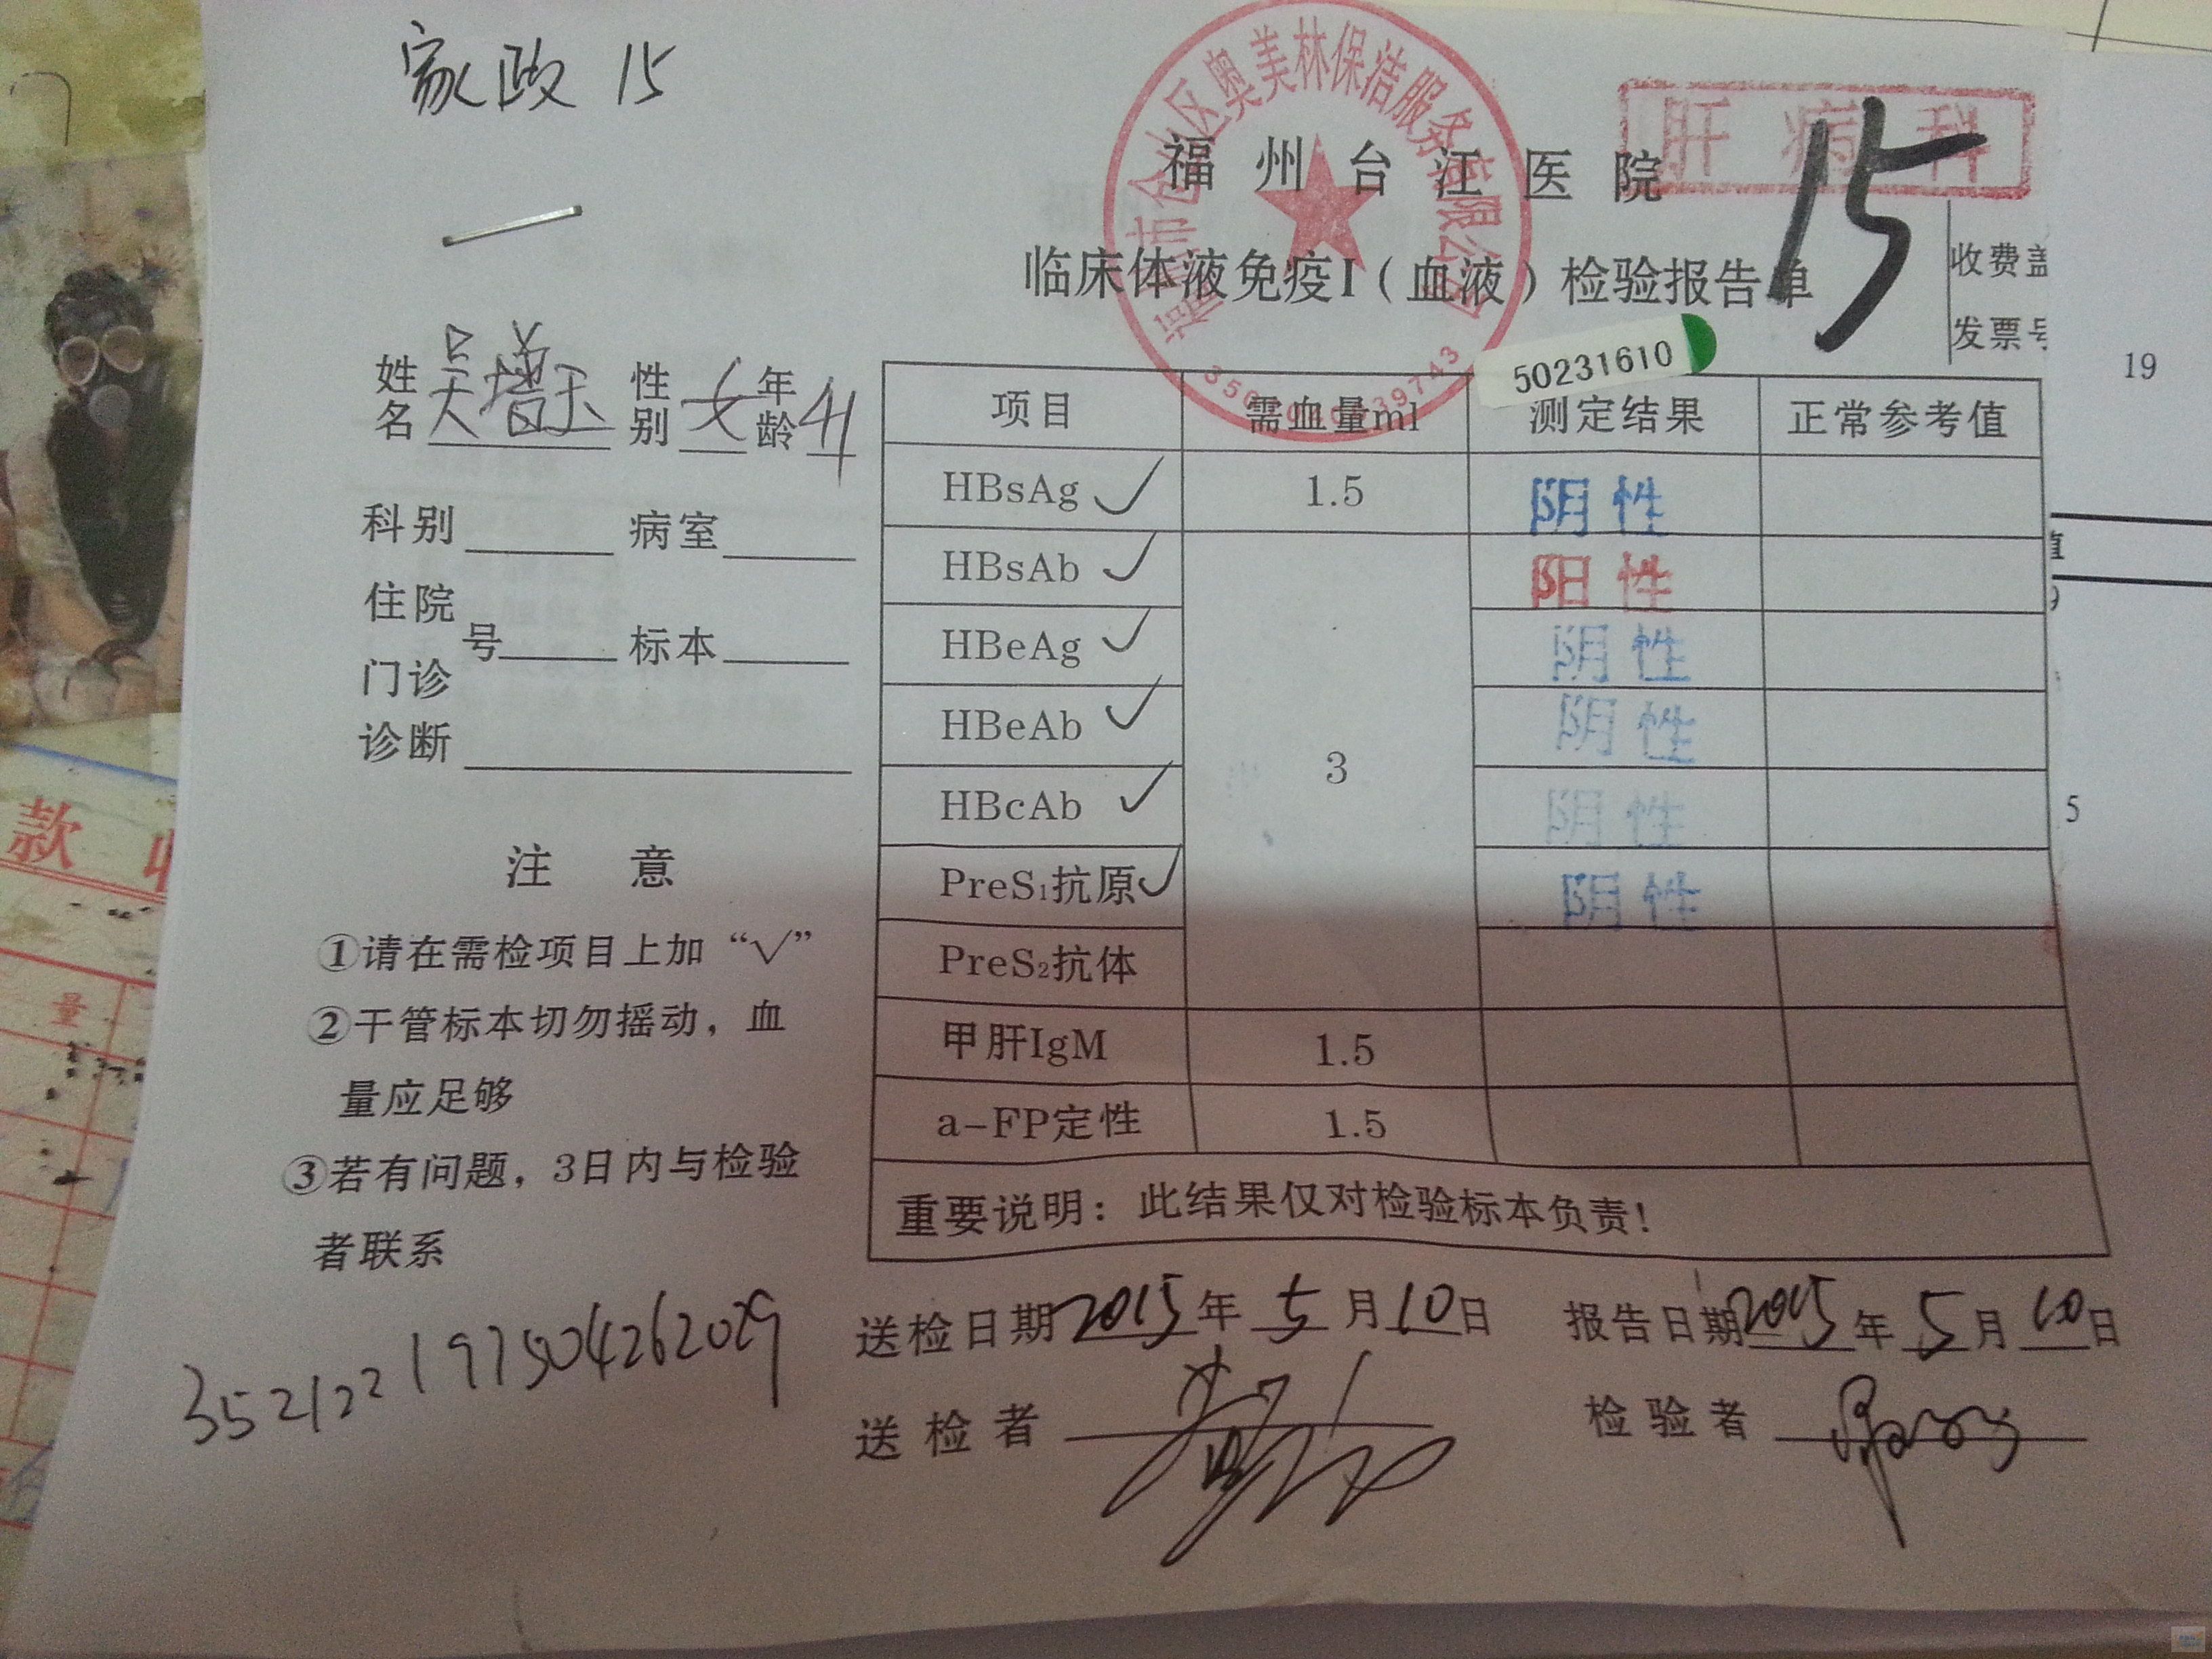 家政 15
福州市仓山区奥美林保洁服务有限公司
肝病科
15
福州台江医院
临床体液免疫I（血液）检验报告单
收费盖
发票号
19
50231610
姓名 吴增玉 性别 女 年龄 41
科别 病室
住院
门诊 号 标本
诊断
项目 需血量ml 测定结果 正常参考值
HBsAg ✓ 1.5 阴性
HBsAb ✓ 阳性
HBeAg ✓ 阴性
HBeAb ✓ 3 阴性
HBcAb ✓ 阴性
PreS₁抗原 ✓ 阴性
PreS₂抗体
甲肝IgM 1.5
a-FP定性 1.5
重要说明：此结果仅对检验标本负责！
注 意
①请在需检项目上加“√”
②干管标本切勿摇动，血
量应足够
③若有问题，3日内与检验
者联系
352122197504262029
送检日期2015年5月10日 报告日期2015年5月10日
送检者 检验者
值
5
款
量